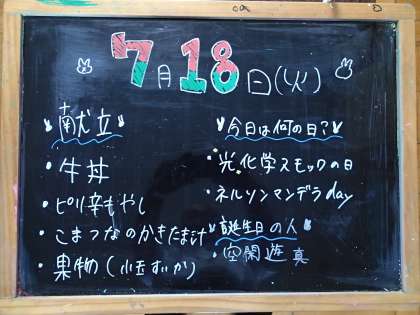 7月18日(火)
献立
・牛丼
・ピリ辛もやし
・こまつなのかきたま汁
・果物(小玉すいか)
今日は何の日?
・光化学スモックの日
・ネルソンマンデラday
誕生日の人